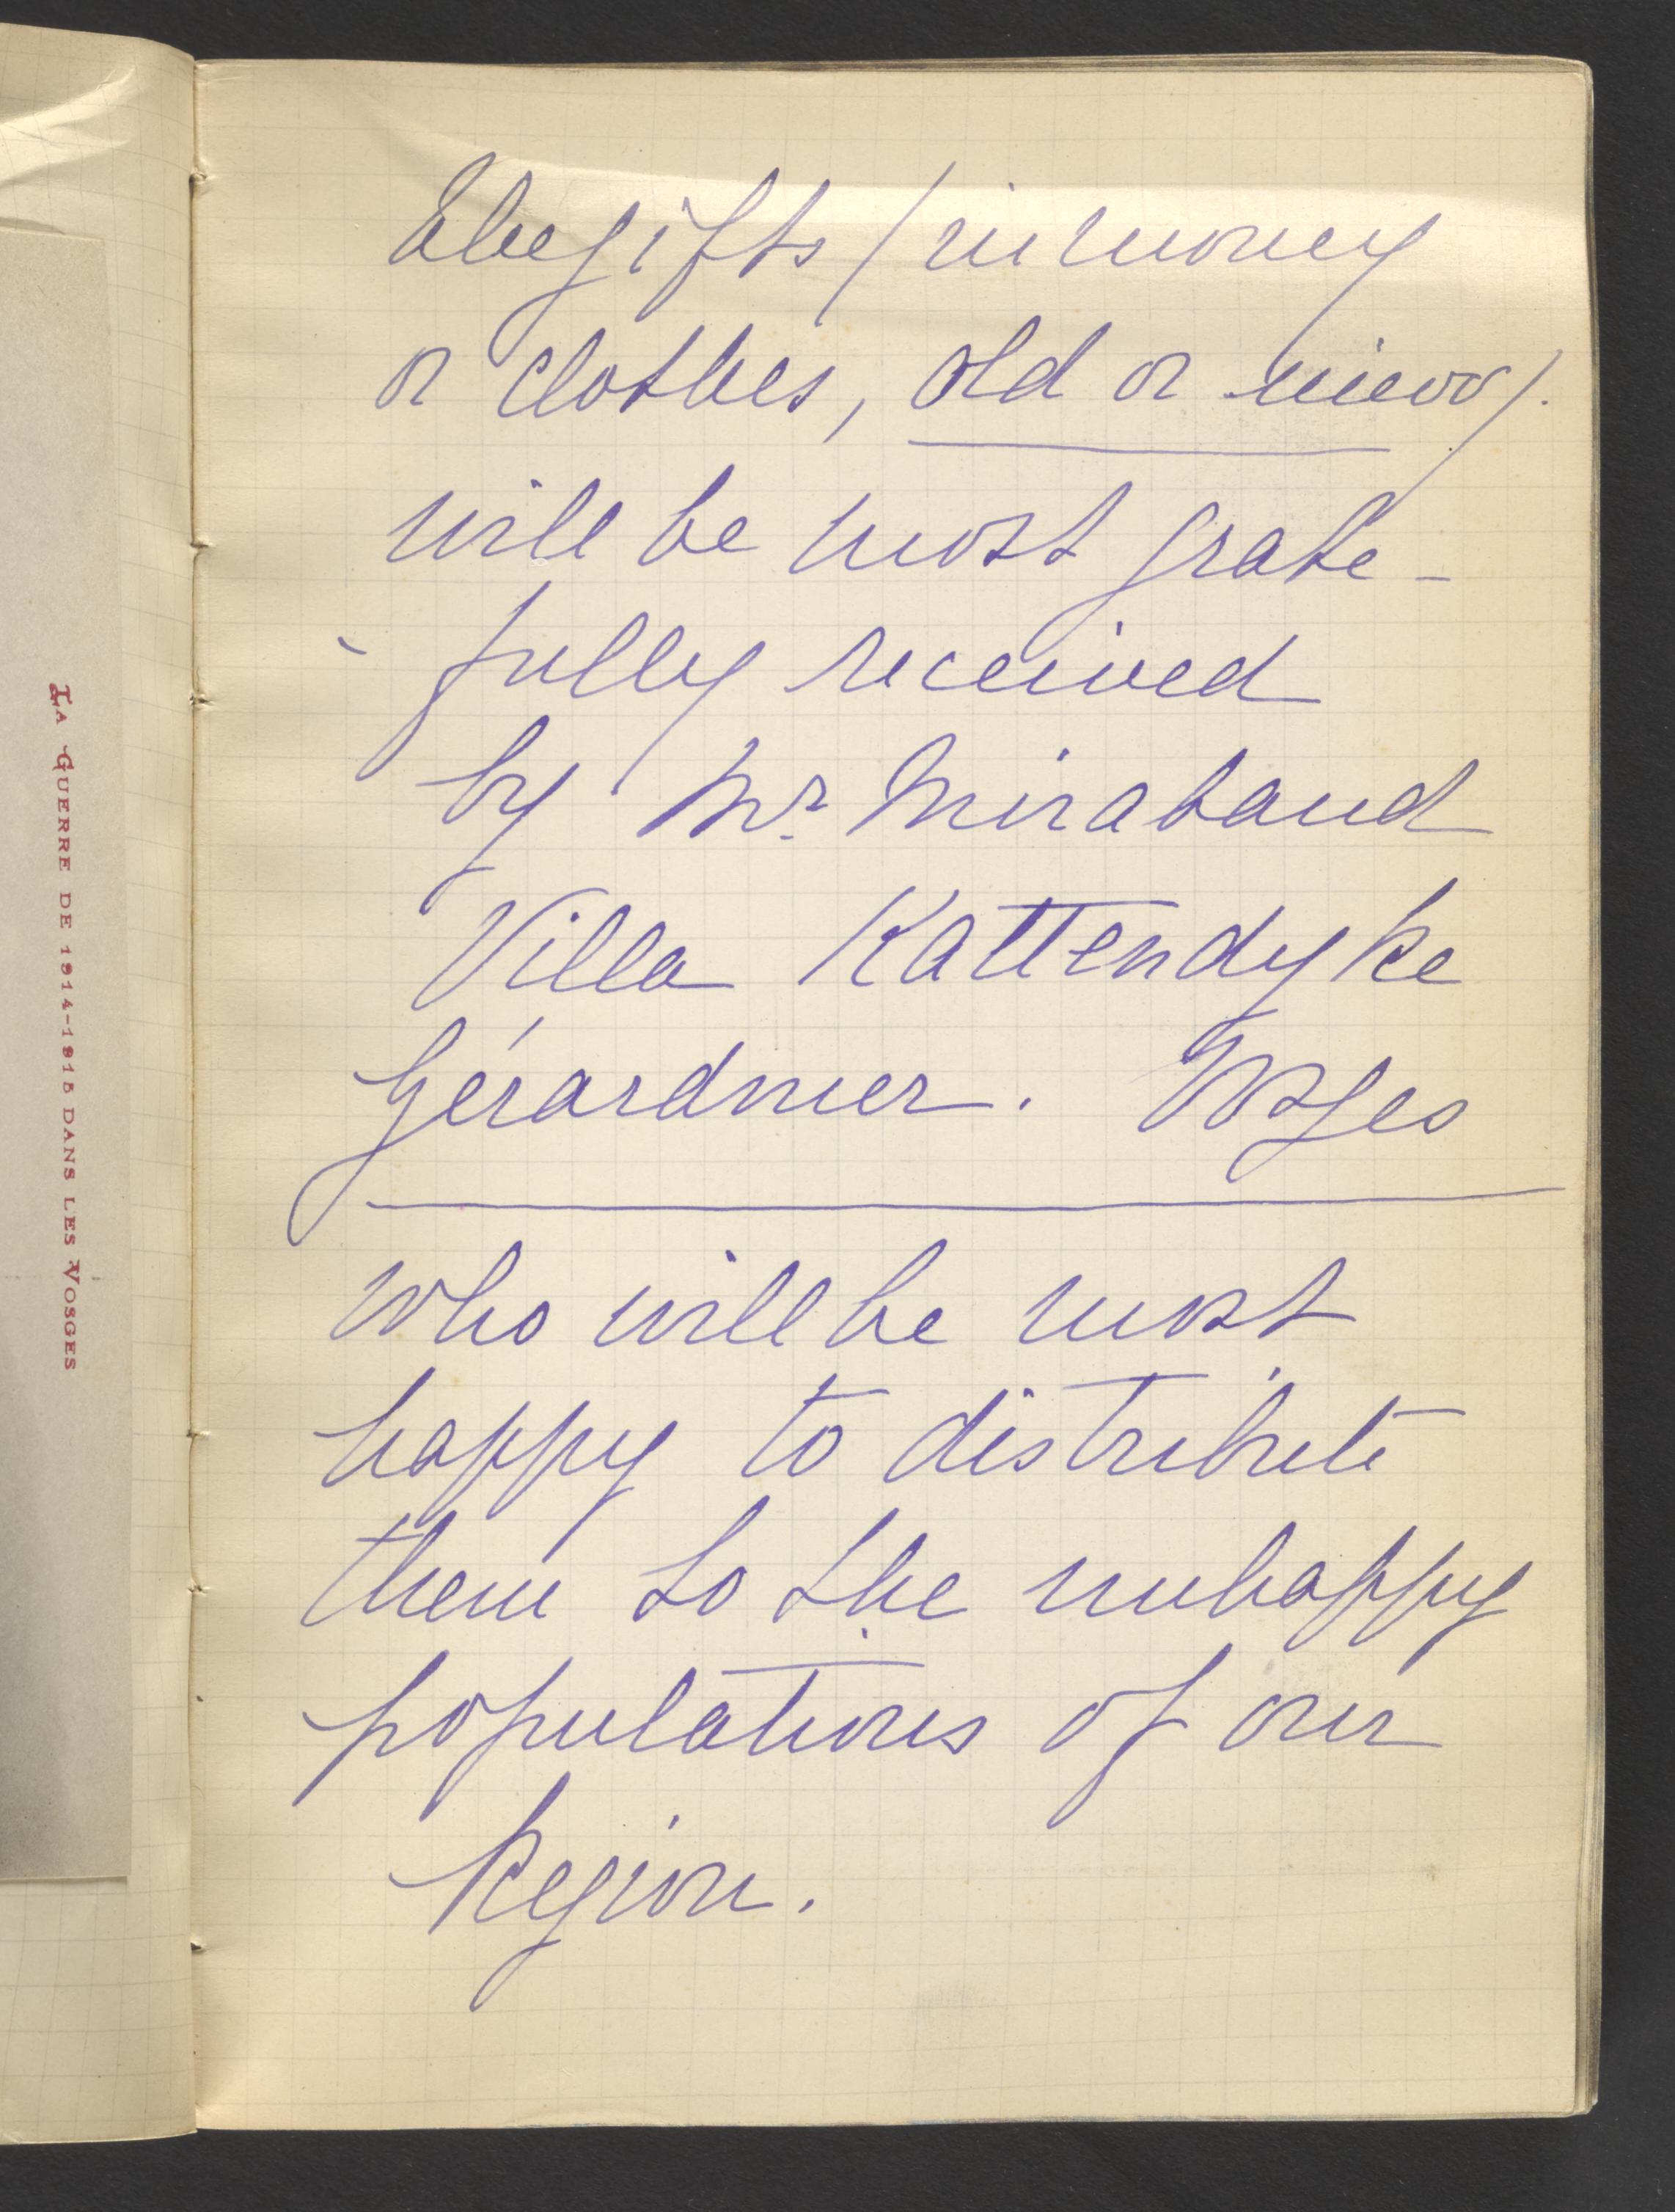 LA GUERRE DE 1914-1915 DANS LES VOSGES
The gifts (in money
or clothes, old or new).
will be most grate-
fully received
by Mr. Mirabaud
Villa Kattendyke
Gérardmer. Vosges
who will be most
happy to distribute
them to the unhappy
populations of our
Region.